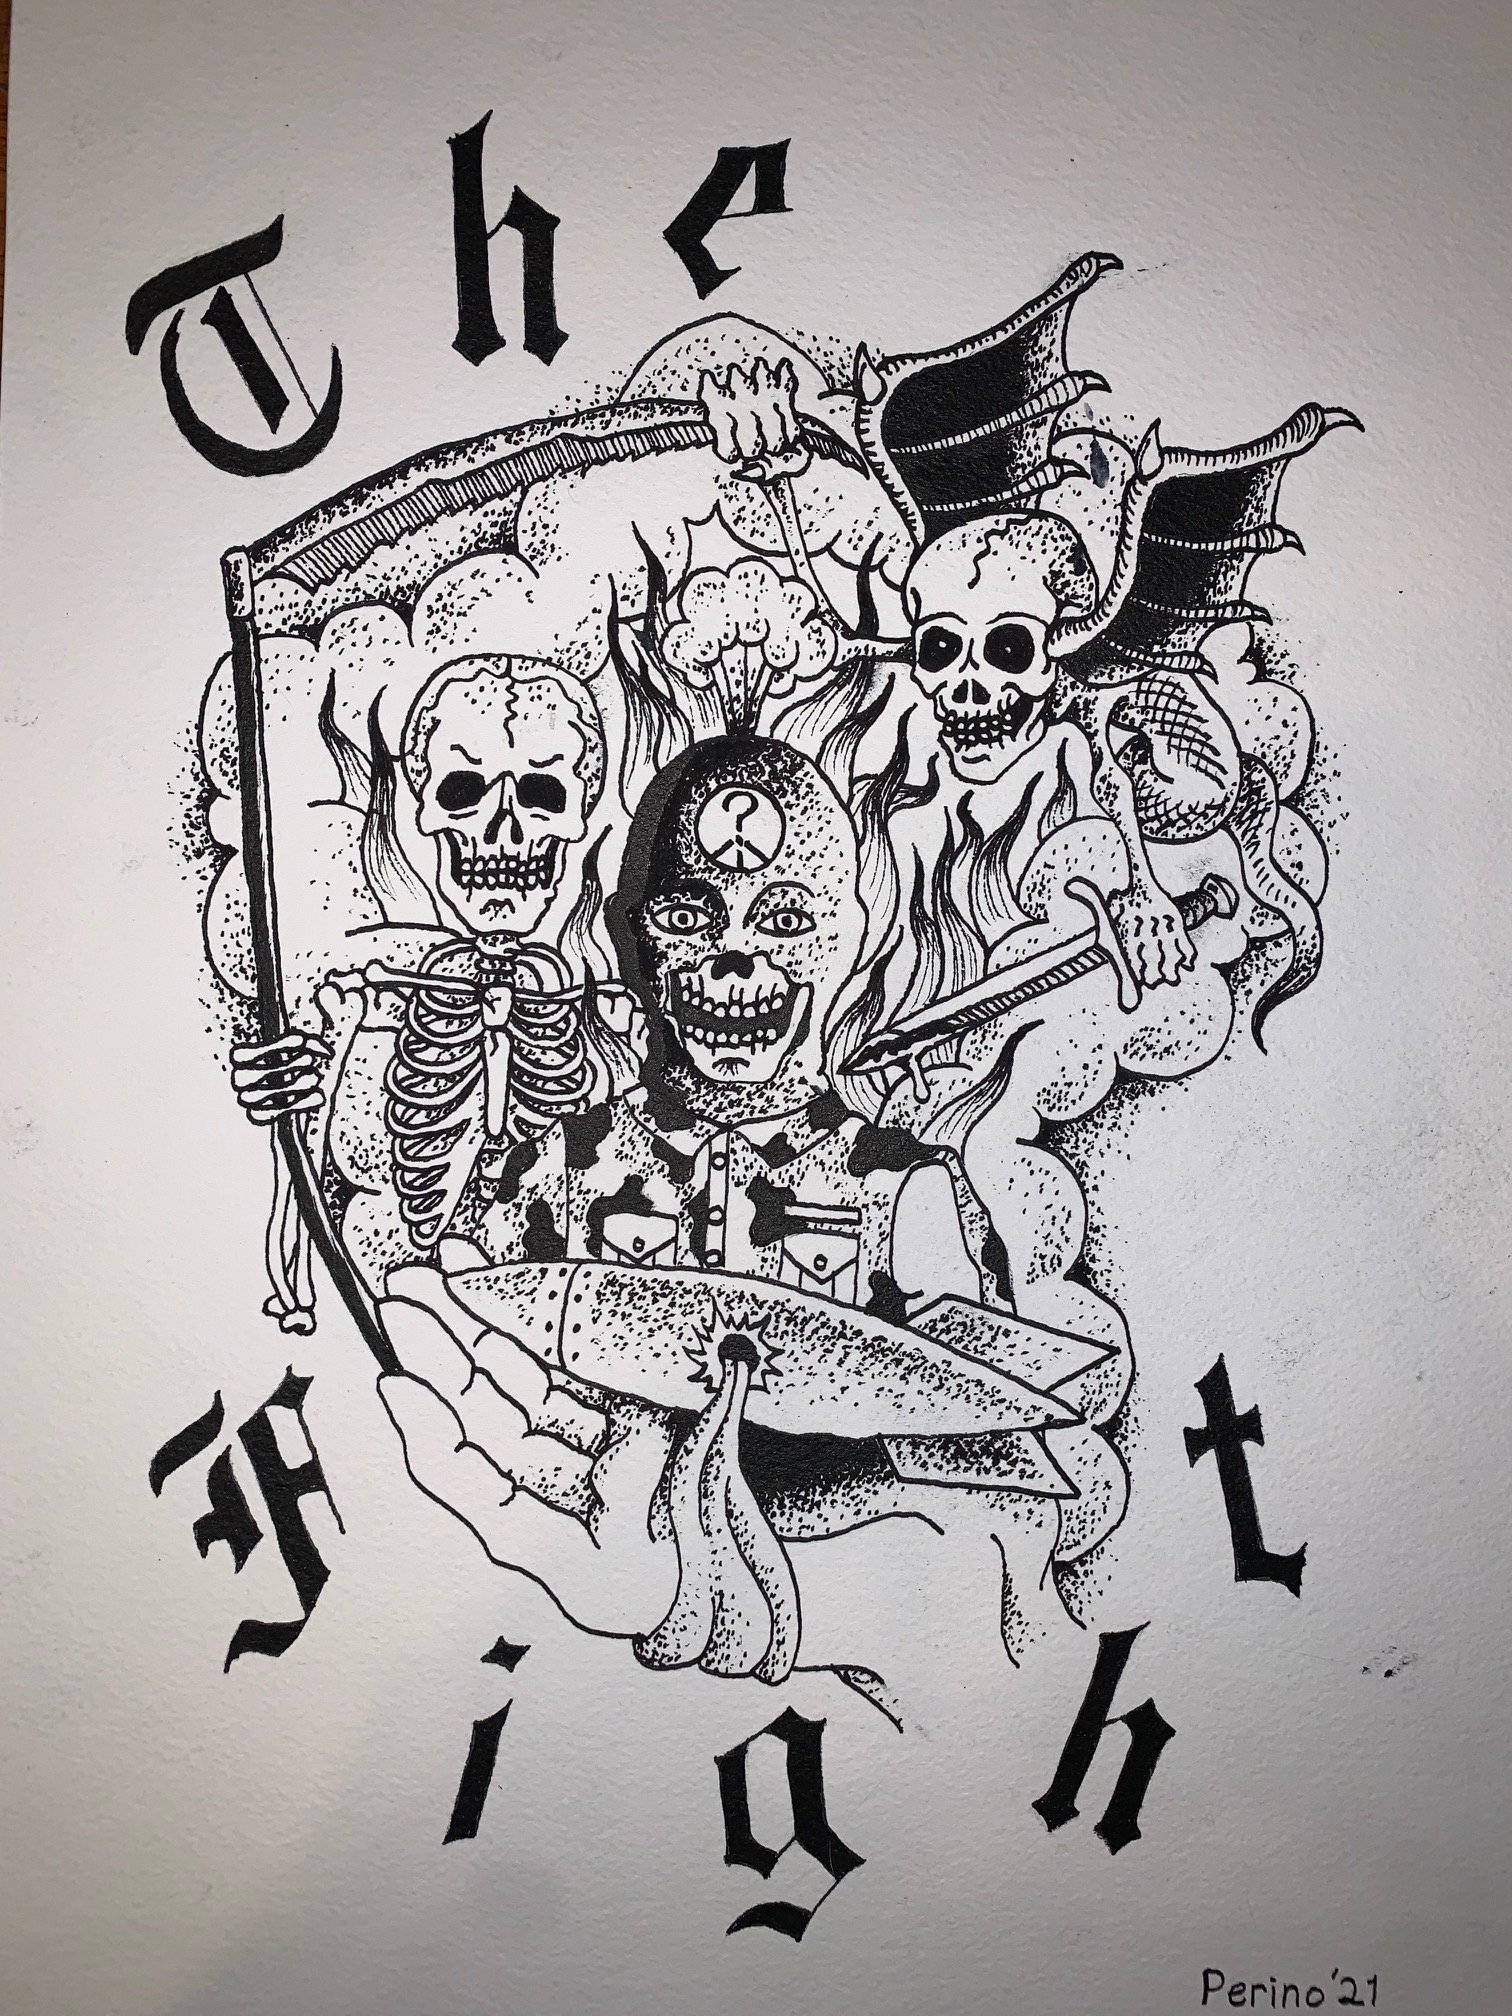 The
?
Fight
Perino '21